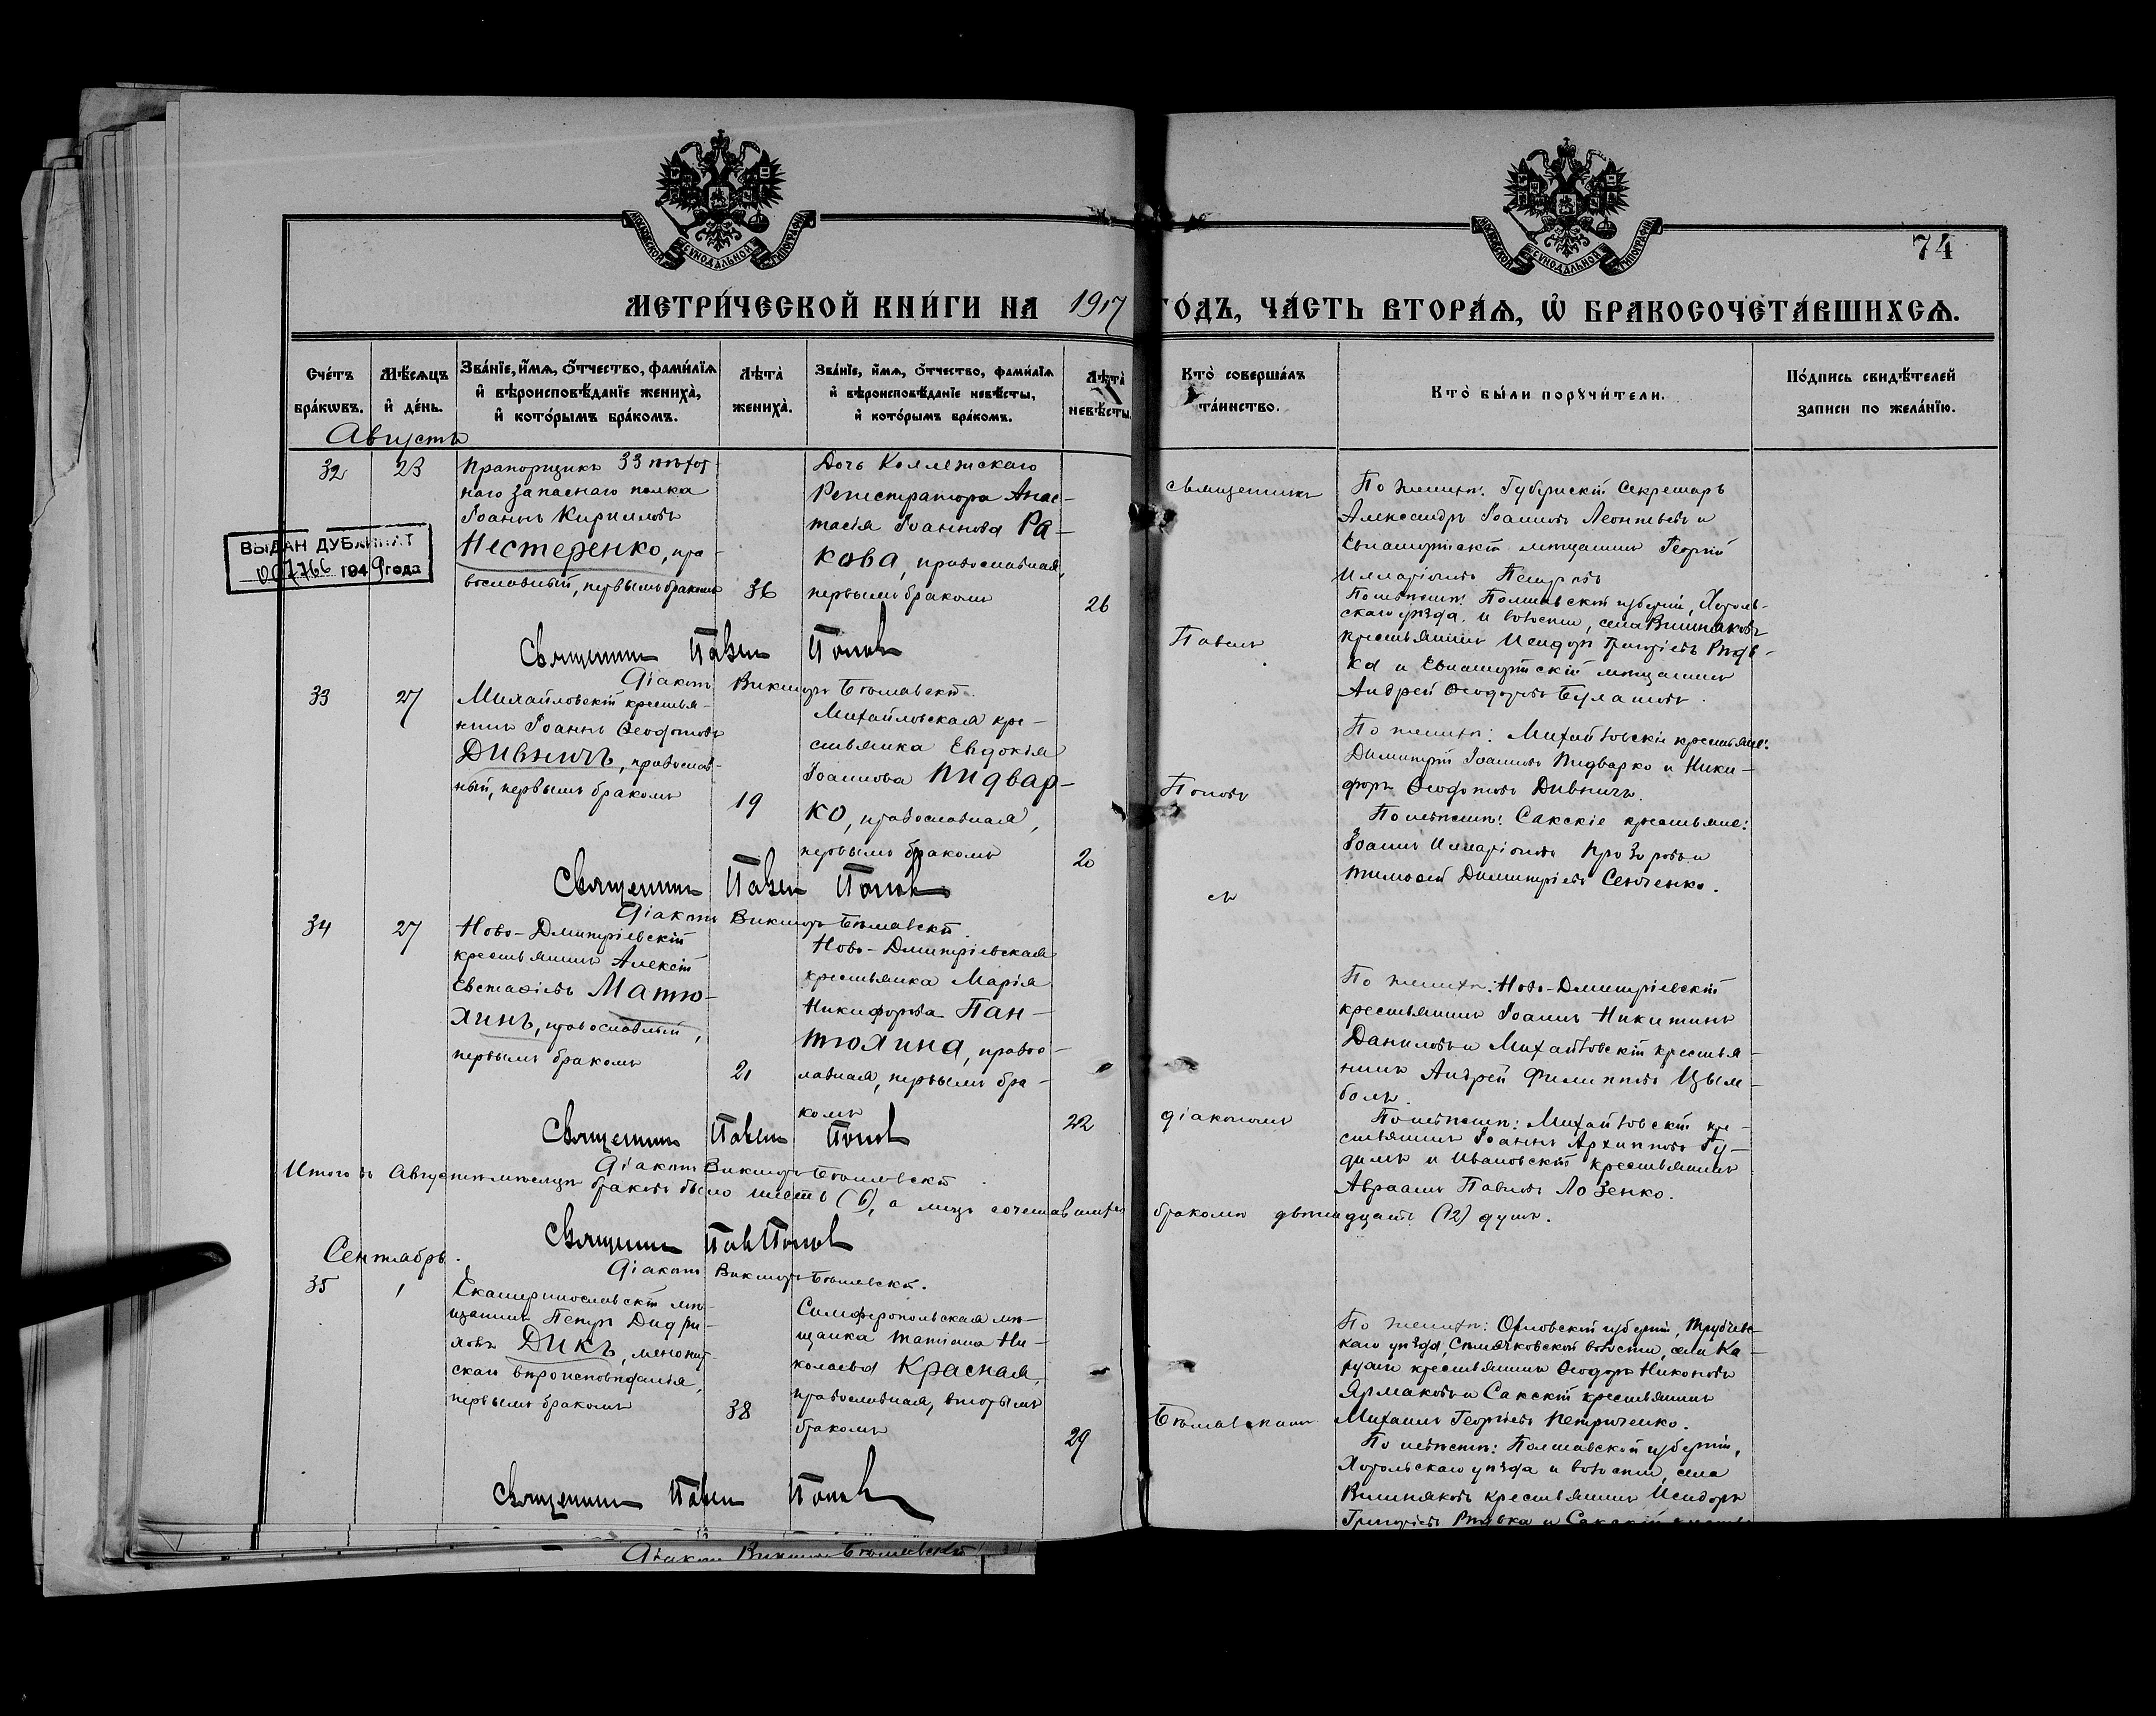 МОСКОВСКОЙ СѴНОДАЛЬНОЙ ТИПОГРАФІИ
МОСКОВСКОЙ СѴНОДАЛЬНОЙ ТИПОГРАФІИ
74
МЕТРИ́ЧЕСКОЙ КНИ́ГИ НА 1917 ГО́ДЪ, ЧА́СТЬ ВТОРА́Ѧ, Ѽ БРАКОСОЧЕТА́ВШИХСѦ.
Сче́тъ бра́кѡвъ.
Мѣ́сѧцъ и҆ де́нь.
Зва́нїе, и҆́мѧ, ѻ҆́тчество, фами́лїѧ
и҆ вѣроисповѣ́данїе жениха̀,
и҆ кото́рымъ бра́комъ.
Лѣта̀ жениха̀.
Зва́нїе, и҆́мѧ, ѻ҆́тчество, фами́лїѧ
и҆ вѣроисповѣ́данїе невѣ́сты,
и҆ кото́рымъ бра́комъ.
Лѣта̀ невѣ́сты.
Кто̀ соверша́лъ
та́инство.
Кто̀ бы́ли порꙋчи́тели.
По́дпись свидѣ́телей
записи по жела́нїю.
Августъ
32
23
Прапорщикъ 33 пѣхот-
наго запаснаго полка
Іоаннъ Кирилловъ
Нестеренко, пра-
вославный, первымъ бракомъ
36
Дочь Коллежскаго
Регистратора Анас-
тасія Іоаннова Ра-
кова, православная,
первымъ бракомъ
26
ВЫДАН ДУБЛИКАТ
1949 года
Священникъ Павелъ Поповъ
Діаконъ Викторъ
священникъ
Павелъ
По женихѣ: Губернскій Секретарь
Александръ Іоанновъ Леонтьевъ и
Евпаторійскій мѣщанинъ Георгій
Илларіоновъ Петровъ
По невѣстѣ: Полтавской губерніи, Хороль-
скаго уѣзда и волости, села Вишняковъ
крестьянинъ Исидоръ Григорьевъ Рѣдь-
ка и Евпаторійскій мѣщанинъ
Андрей Ѳеодоровъ Булатовъ.
33
27
Михайловскій крестья-
нинъ Іоаннъ Ѳеодотовъ
Дивничъ, православ-
ный, первымъ бракомъ
19
Михайловская кре-
стьянка Евдокія
Іоаннова Пидвар-
ко, православная,
первымъ бракомъ
20
Священникъ Павелъ Поповъ
Діаконъ Викторъ
Поповъ
съ
По женихѣ: Михайловскіе крестьяне:
Димитрій Іоанновъ Пидварко и Ники-
форъ Ѳеодотовъ Дивничъ.
По невѣстѣ: Сакскіе крестьяне:
Іоаннъ Илларіоновъ Прозоровъ и
Тимоѳей Димитріевъ Сенченко.
34
27
Ново-Дмитріевскій
крестьянинъ Алексій
Евстаѳіевъ Матю-
хинъ, православный,
первымъ бракомъ
21
Ново-Дмитріевская
крестьянка Марія
Никифорова Пан-
тюхина, правос-
лавная, первымъ бра-
комъ
22
Священникъ Павелъ Поповъ
Діаконъ Викторъ
діакономъ
По женихѣ: Ново-Дмитріевскій
крестьянинъ Іоаннъ Никитинъ
Даниловъ и Михайловскій крестья-
нинъ Андрей Филипповъ Цым-
балъ.
По невѣстѣ: Михайловскій кре-
стьянинъ Іоаннъ Архиповъ Гу-
димъ и Ивановскій крестьянинъ
Авраамъ Павловъ Лозенко.
Итого въ Августѣ мѣсяцѣ браковъ было шесть (6), а лицъ сочетавшихся бракомъ двѣнадцать (12) душъ.
Священникъ Пав Поповъ
Діаконъ Викторъ
Сентябрь.
35
1
Екатеринославскій мѣ-
щанинъ Петръ
Дикъ, менонит-
скаго вѣроисповѣданія,
первымъ бракомъ
38
Симферопольская мѣ-
щанка Татіана Ни-
колаева Красная,
православная, вторымъ
бракомъ
29
Священникъ Павелъ Поповъ
Діаконъ Викторъ
По женихѣ: Орловской губерніи, Трубчевс-
каго уѣзда, волости, села
крестьянинъ Ѳеодоръ Никоновъ
Ярмаковъ и Сакскій крестьянинъ
Михаилъ Георгіевъ Петриченко.
По невѣстѣ: Полтавской губерніи,
Хорольскаго уѣзда и волости, села
Вишняковъ крестьянинъ Исидоръ
Григорьевъ Рѣдька и Сакскій